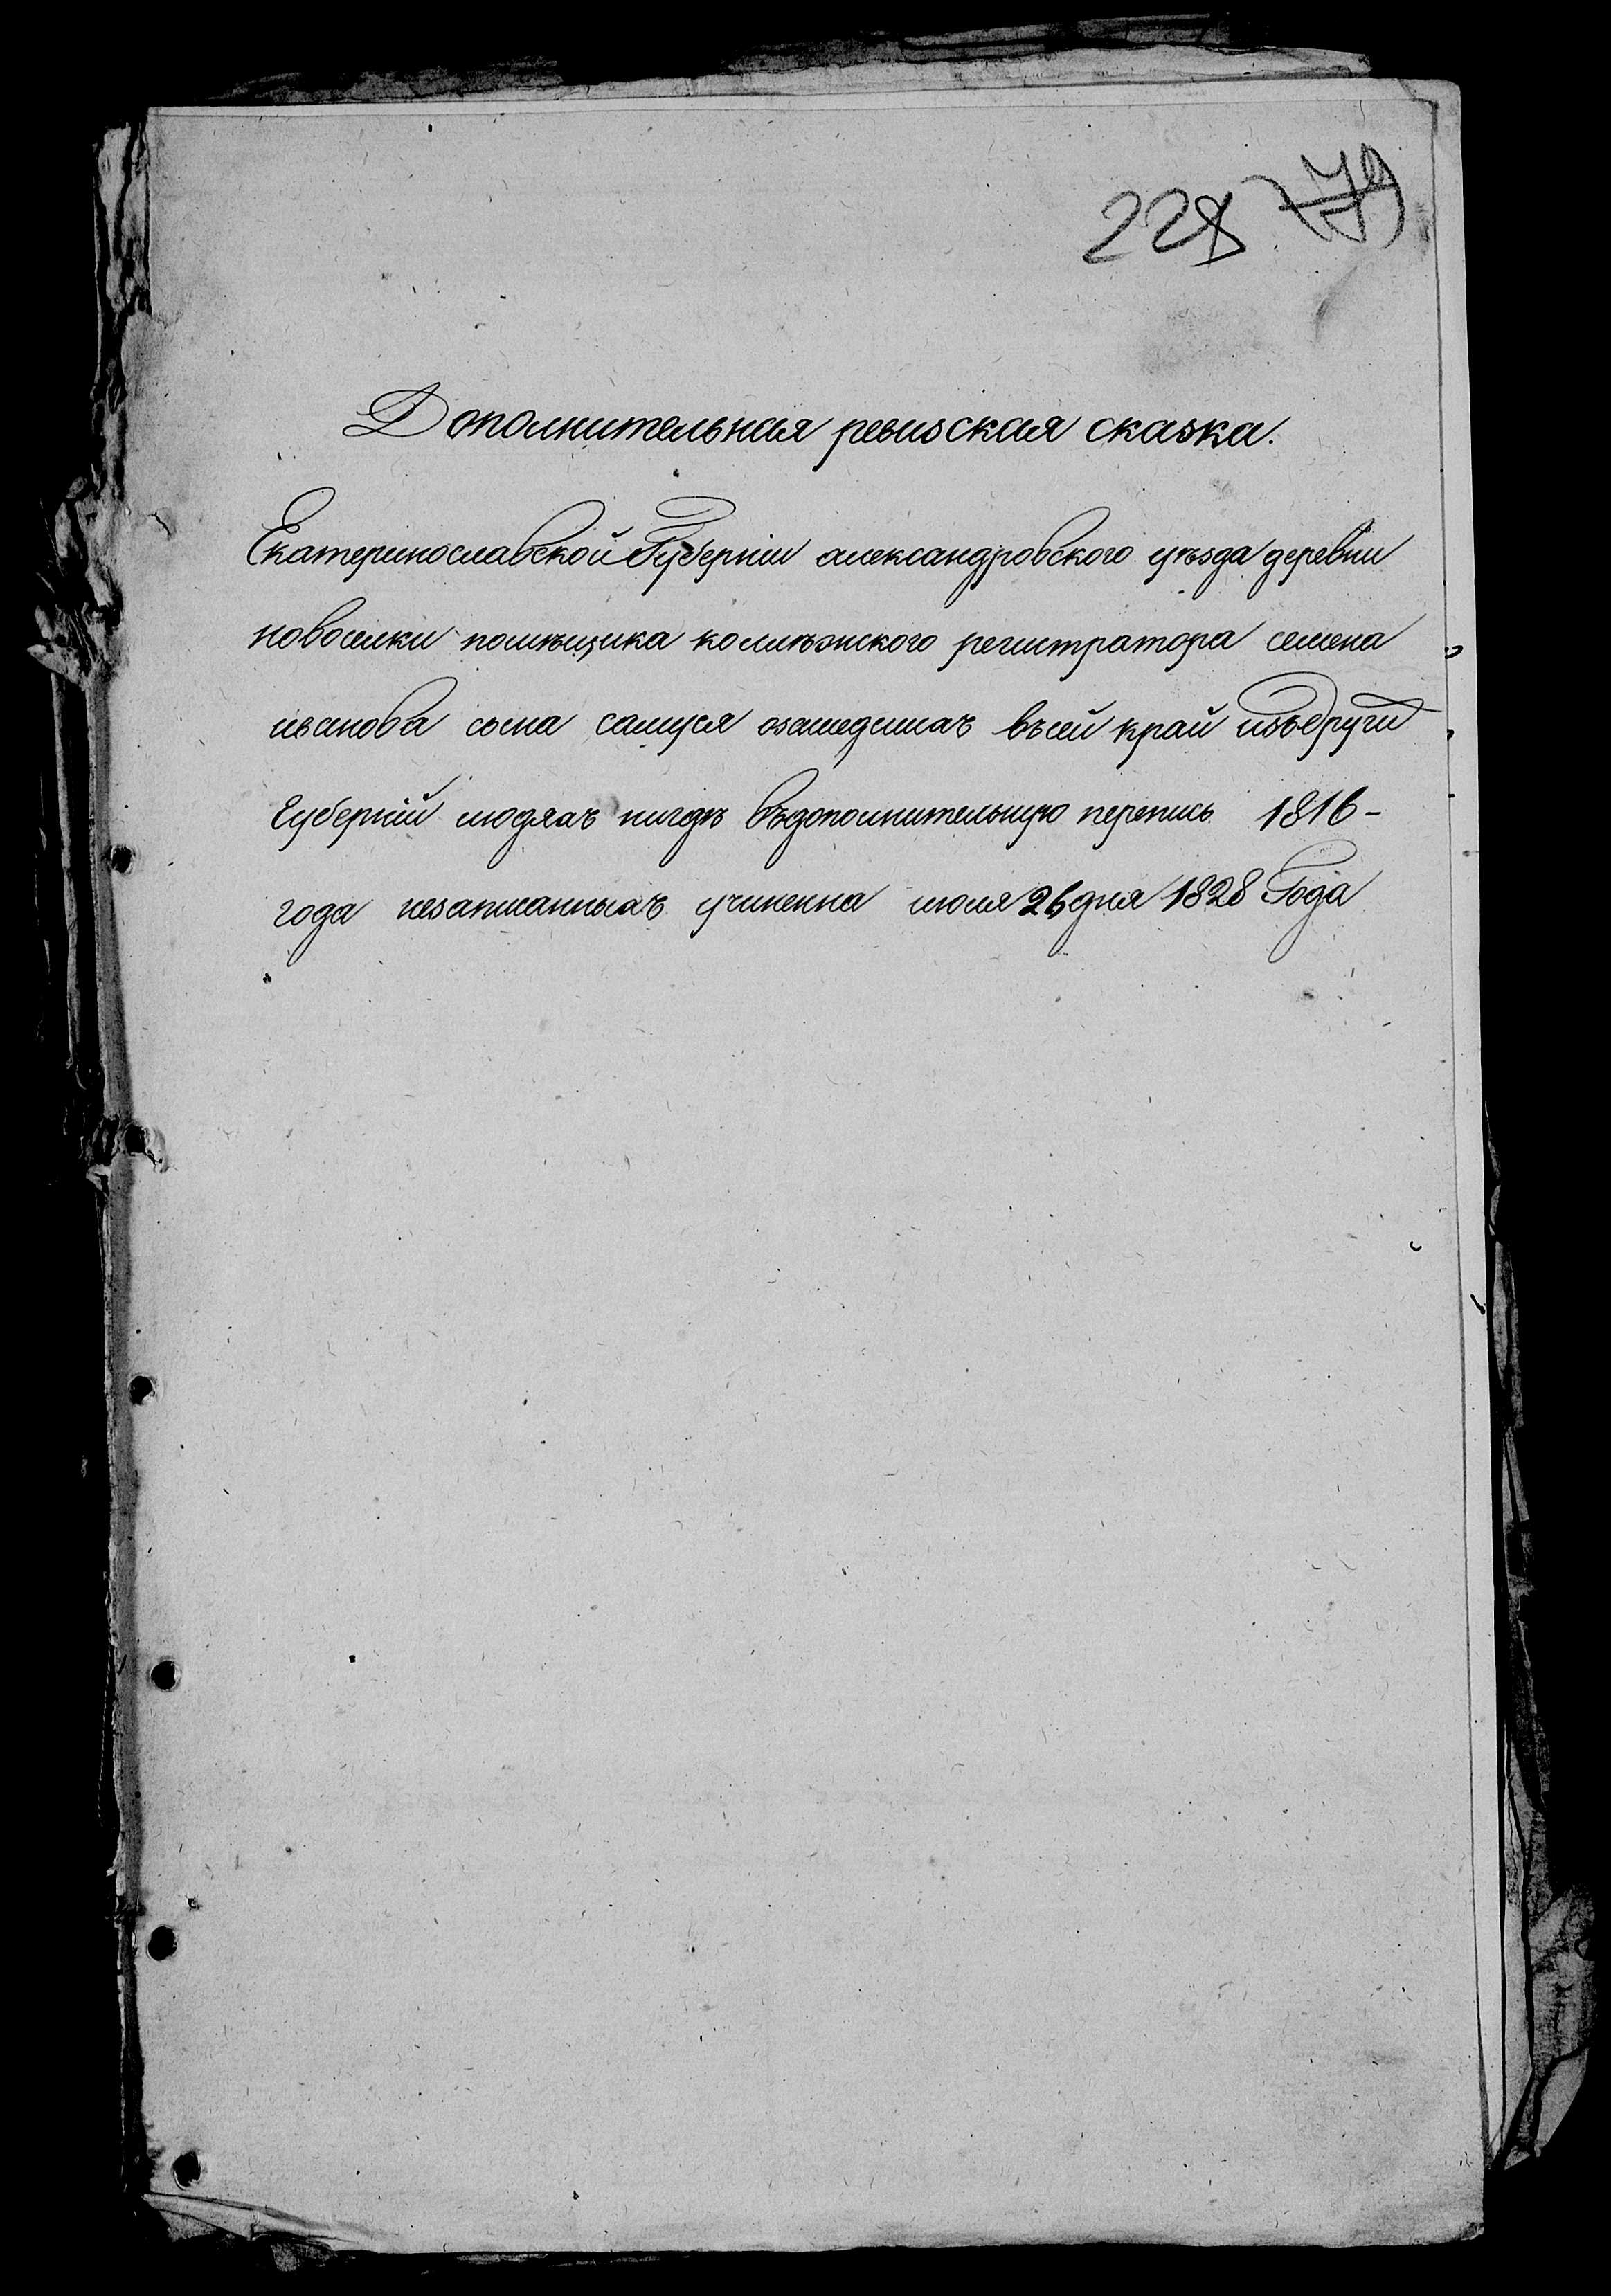 228 779
Дополнительная ревизская сказка.
Екатеринославской Губерніи александровского уѣзда деревни
новоселки помѣщика колѣжского регистратора семена
иванова сына самуся озашедшихъ въсей край изъдруги
Губерній людяхъ нигдѣ въдополнительную перепись 1816-
года незаписанныхъ учинена июля 26 дня 1828 Года